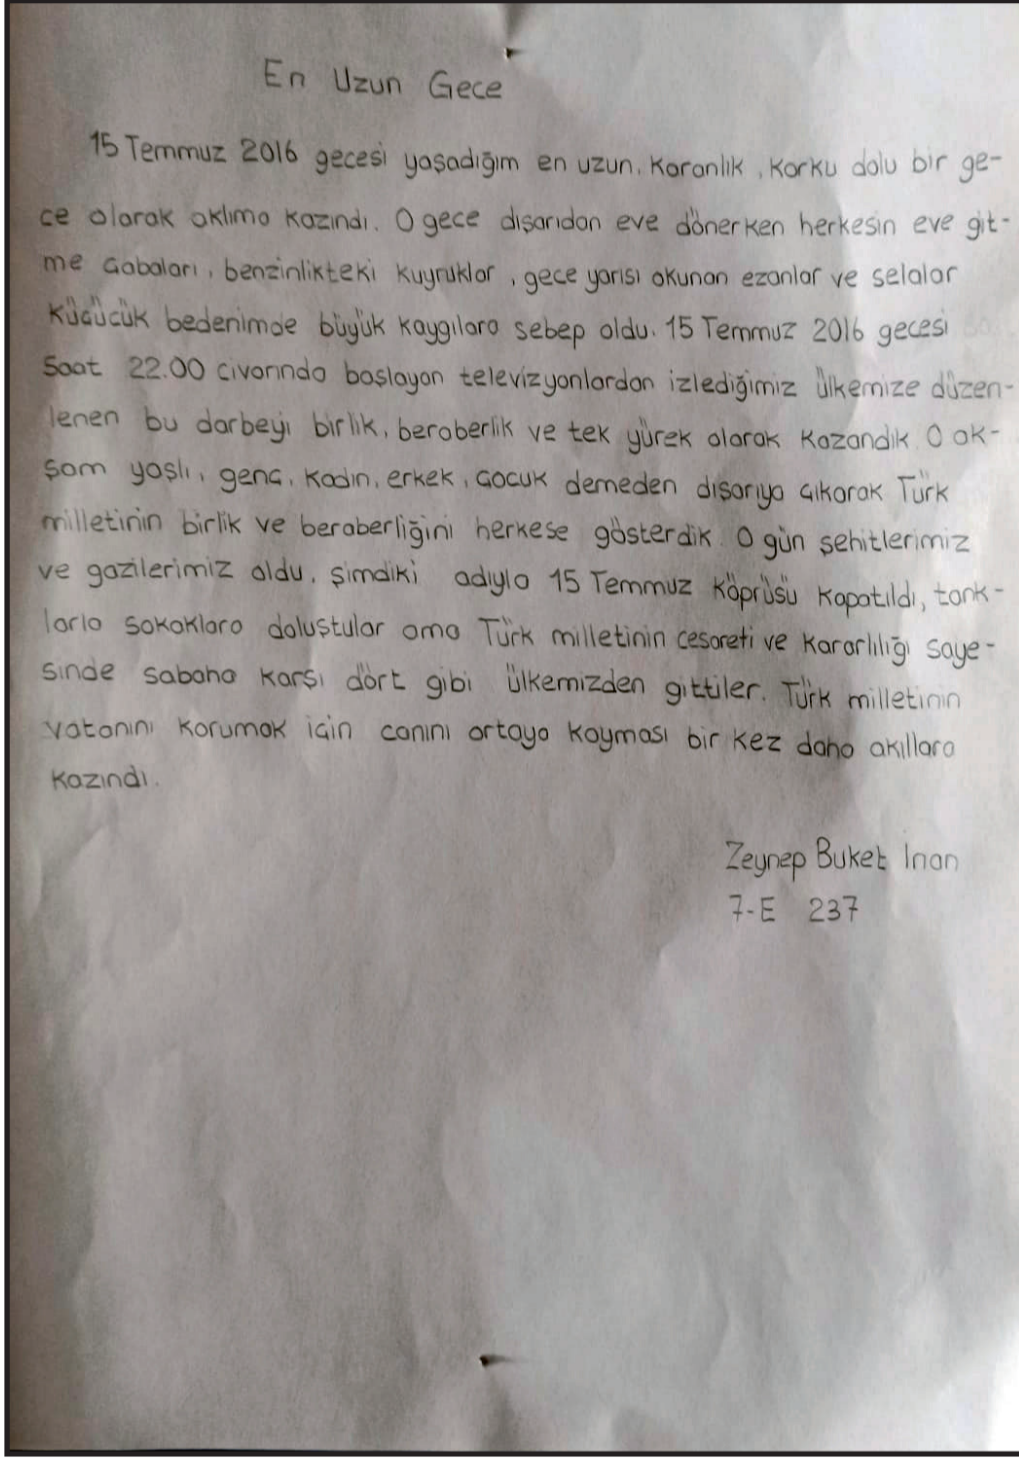 En Uzun Gece
15 Temmuz 2016 gecesi yaşadığım en uzun, karanlık, korku dolu bir ge-
ce olarak aklıma kazındı. O gece dışarıdan eve dönerken herkesin eve git-
me çabaları, benzinlikteki kuyruklar, gece yarısı okunan ezanlar ve selalar
küçücük bedenimde büyük kaygılara sebep oldu. 15 Temmuz 2016 gecesi
Saat 22.00 civarında başlayan televizyonlardan izlediğimiz ülkemize düzen-
lenen bu darbeyi birlik, beraberlik ve tek yürek olarak kazandık. O ak-
şam yaşlı, genç, kadın, erkek, çocuk demeden dışarıya çıkarak Türk
milletinin birlik ve beraberliğini herkese gösterdik. O gün şehitlerimiz
ve gazilerimiz oldu. Şimdiki adıyla 15 Temmuz Köprüsü kapatıldı, tank-
larla sokaklara doluştular ama Türk milletinin cesareti ve kararlılığı saye-
sinde sabaha karşı dört gibi ülkemizden gittiler. Türk milletinin
vatanını korumak için canını ortaya koyması bir kez daha akıllara
kazındı.
Zeynep Buket Inan
7-E 237